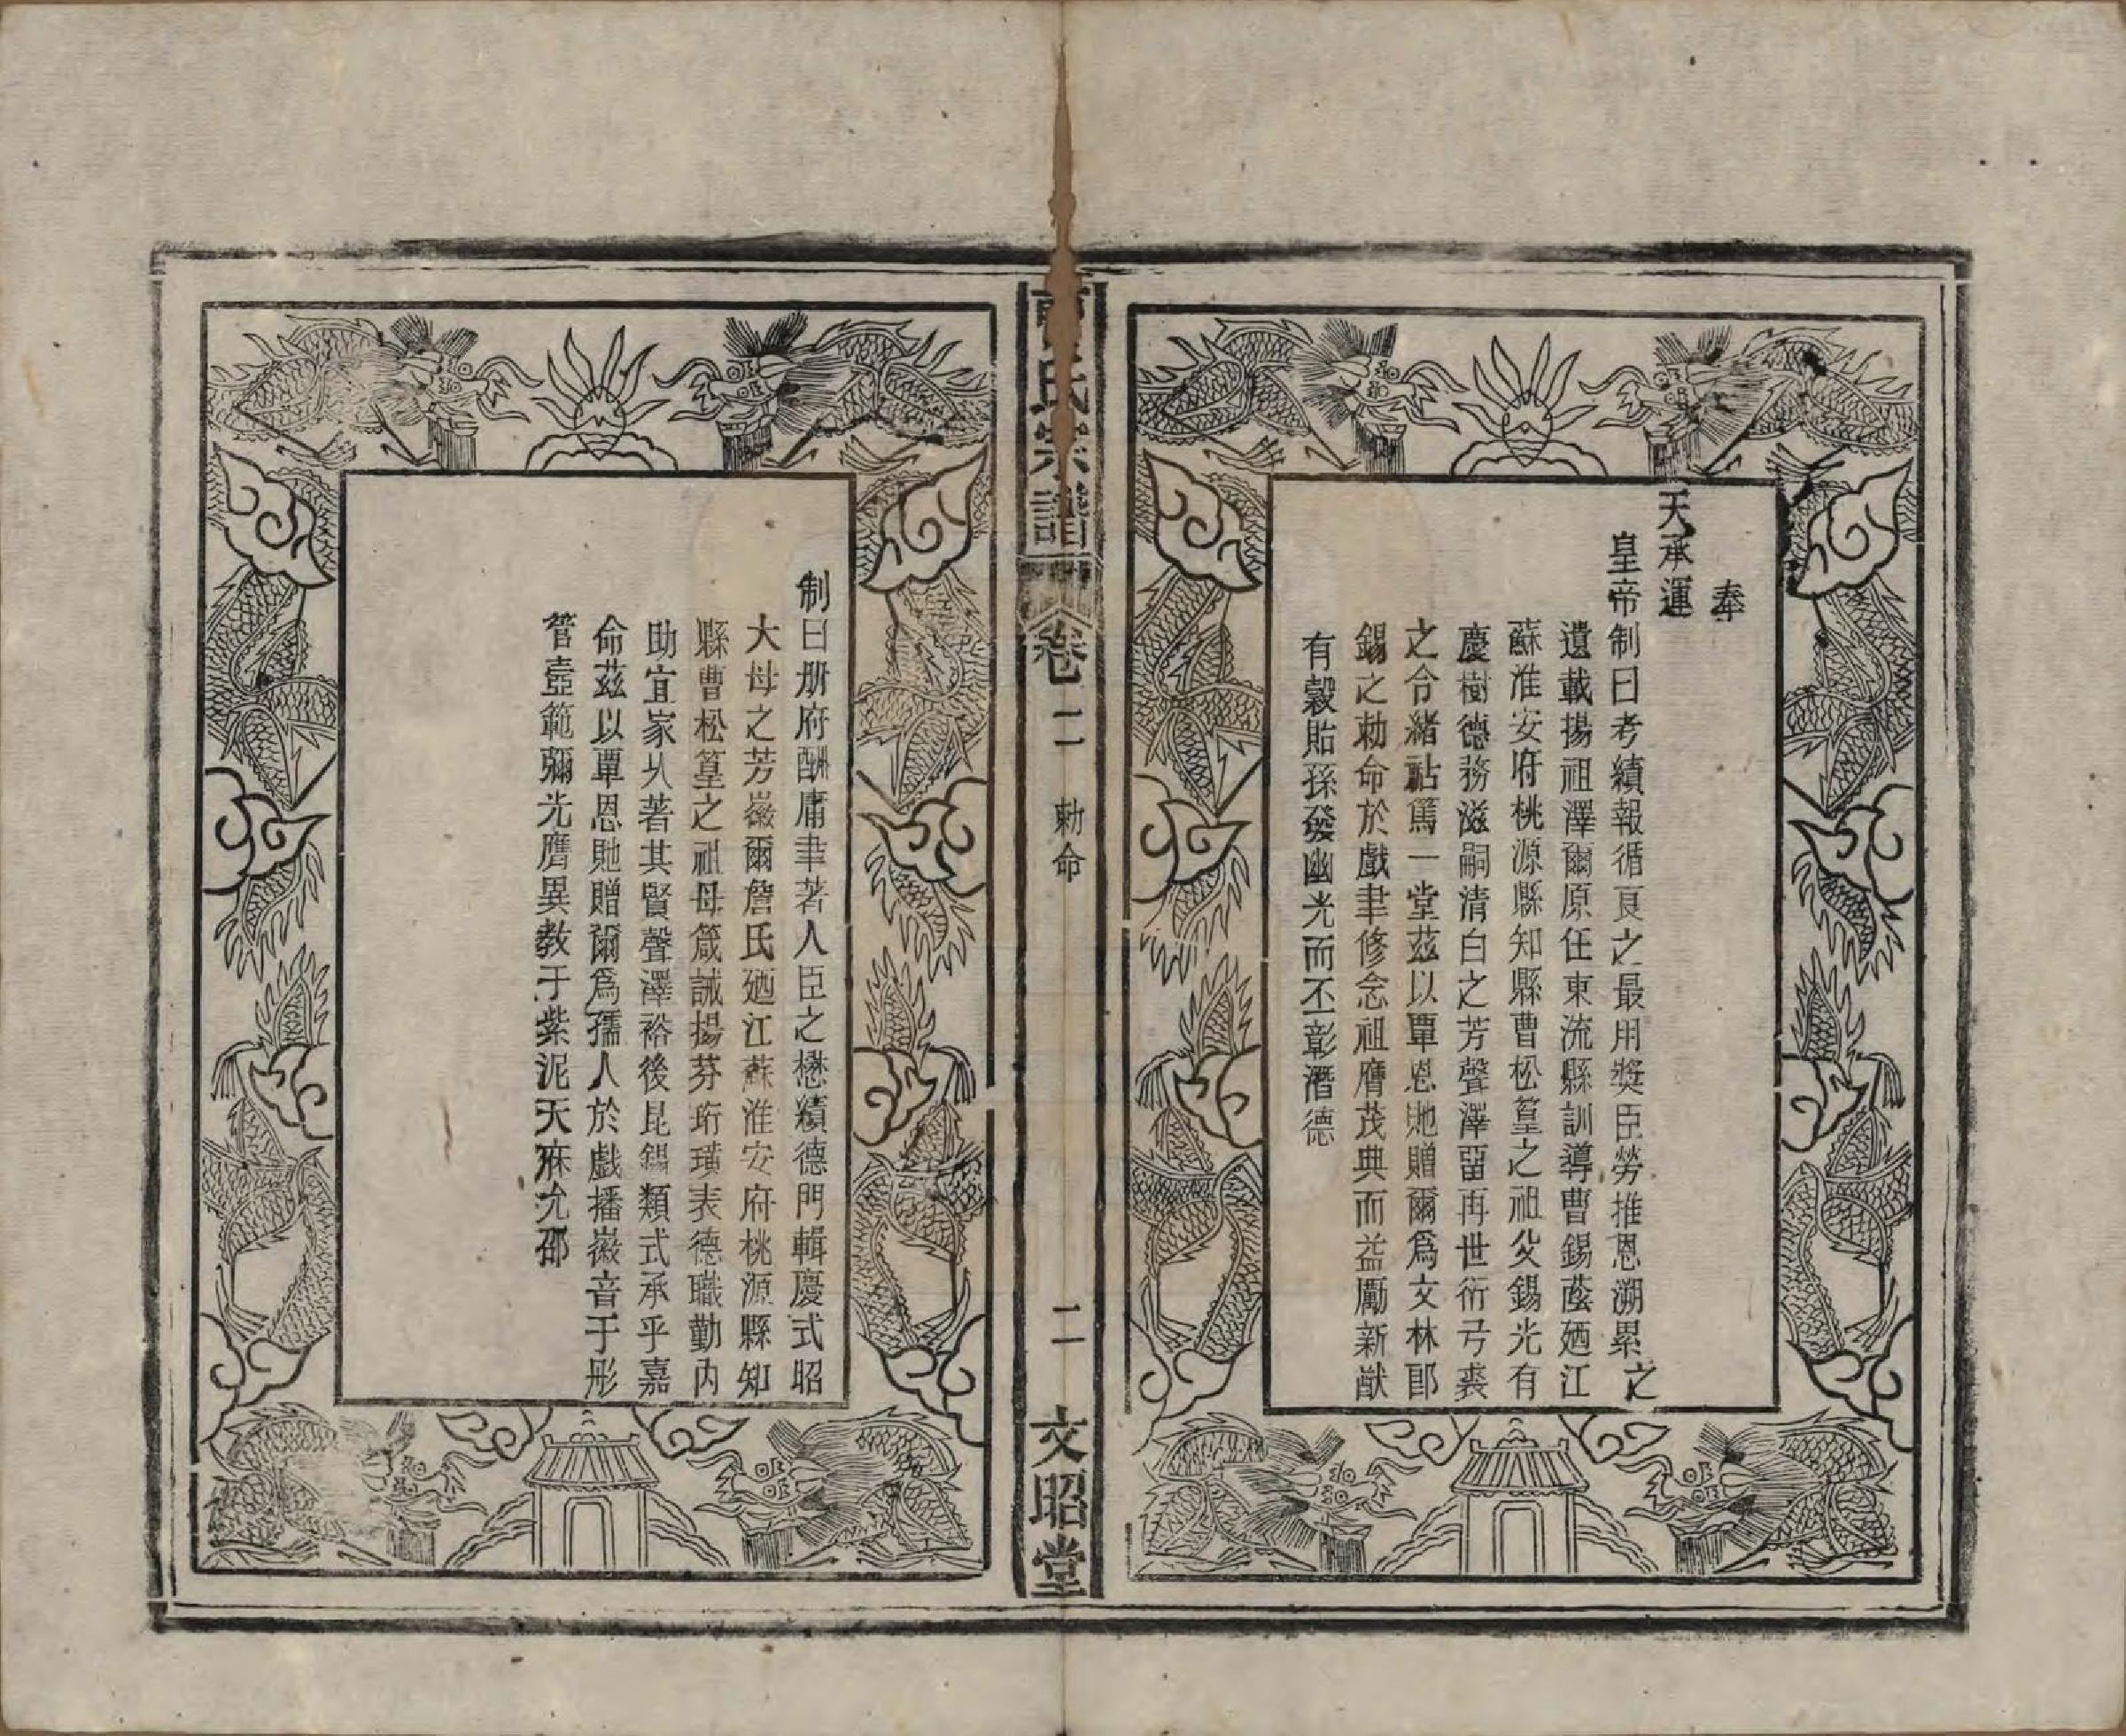 奉
天承運
皇帝制曰考績報循良之最用獎臣勞推恩溯累之
遺載揚祖澤爾原任東流縣訓導曹錫蔭廼江
蘇淮安府桃源縣知縣曹松篁之祖父錫光有
慶樹德務滋嗣清白之芳聲澤畱再世衍弓裘
之令緒祜篤一堂茲以覃恩貤贈爾爲文林郎
錫之勅命於戲聿修念祖膺茂典而益勵新猷
有穀貽孫發幽光而不彰潛德
氏宗譜
卷二
勅命
二
文昭堂
制曰册府酬庸聿著人臣之懋績德門輯慶式昭
大母之芳徽爾詹氏廼江蘇淮安府桃源縣知
縣曹松篁之祖母箴誡揚芬珩璜表德職勤內
助宜家乆著其賢聲澤裕後昆錫類式承乎嘉
命茲以覃恩貤贈爾爲孺人於戲播徽音于彤
管壼範彌光膺異敎于紫泥天庥允邵